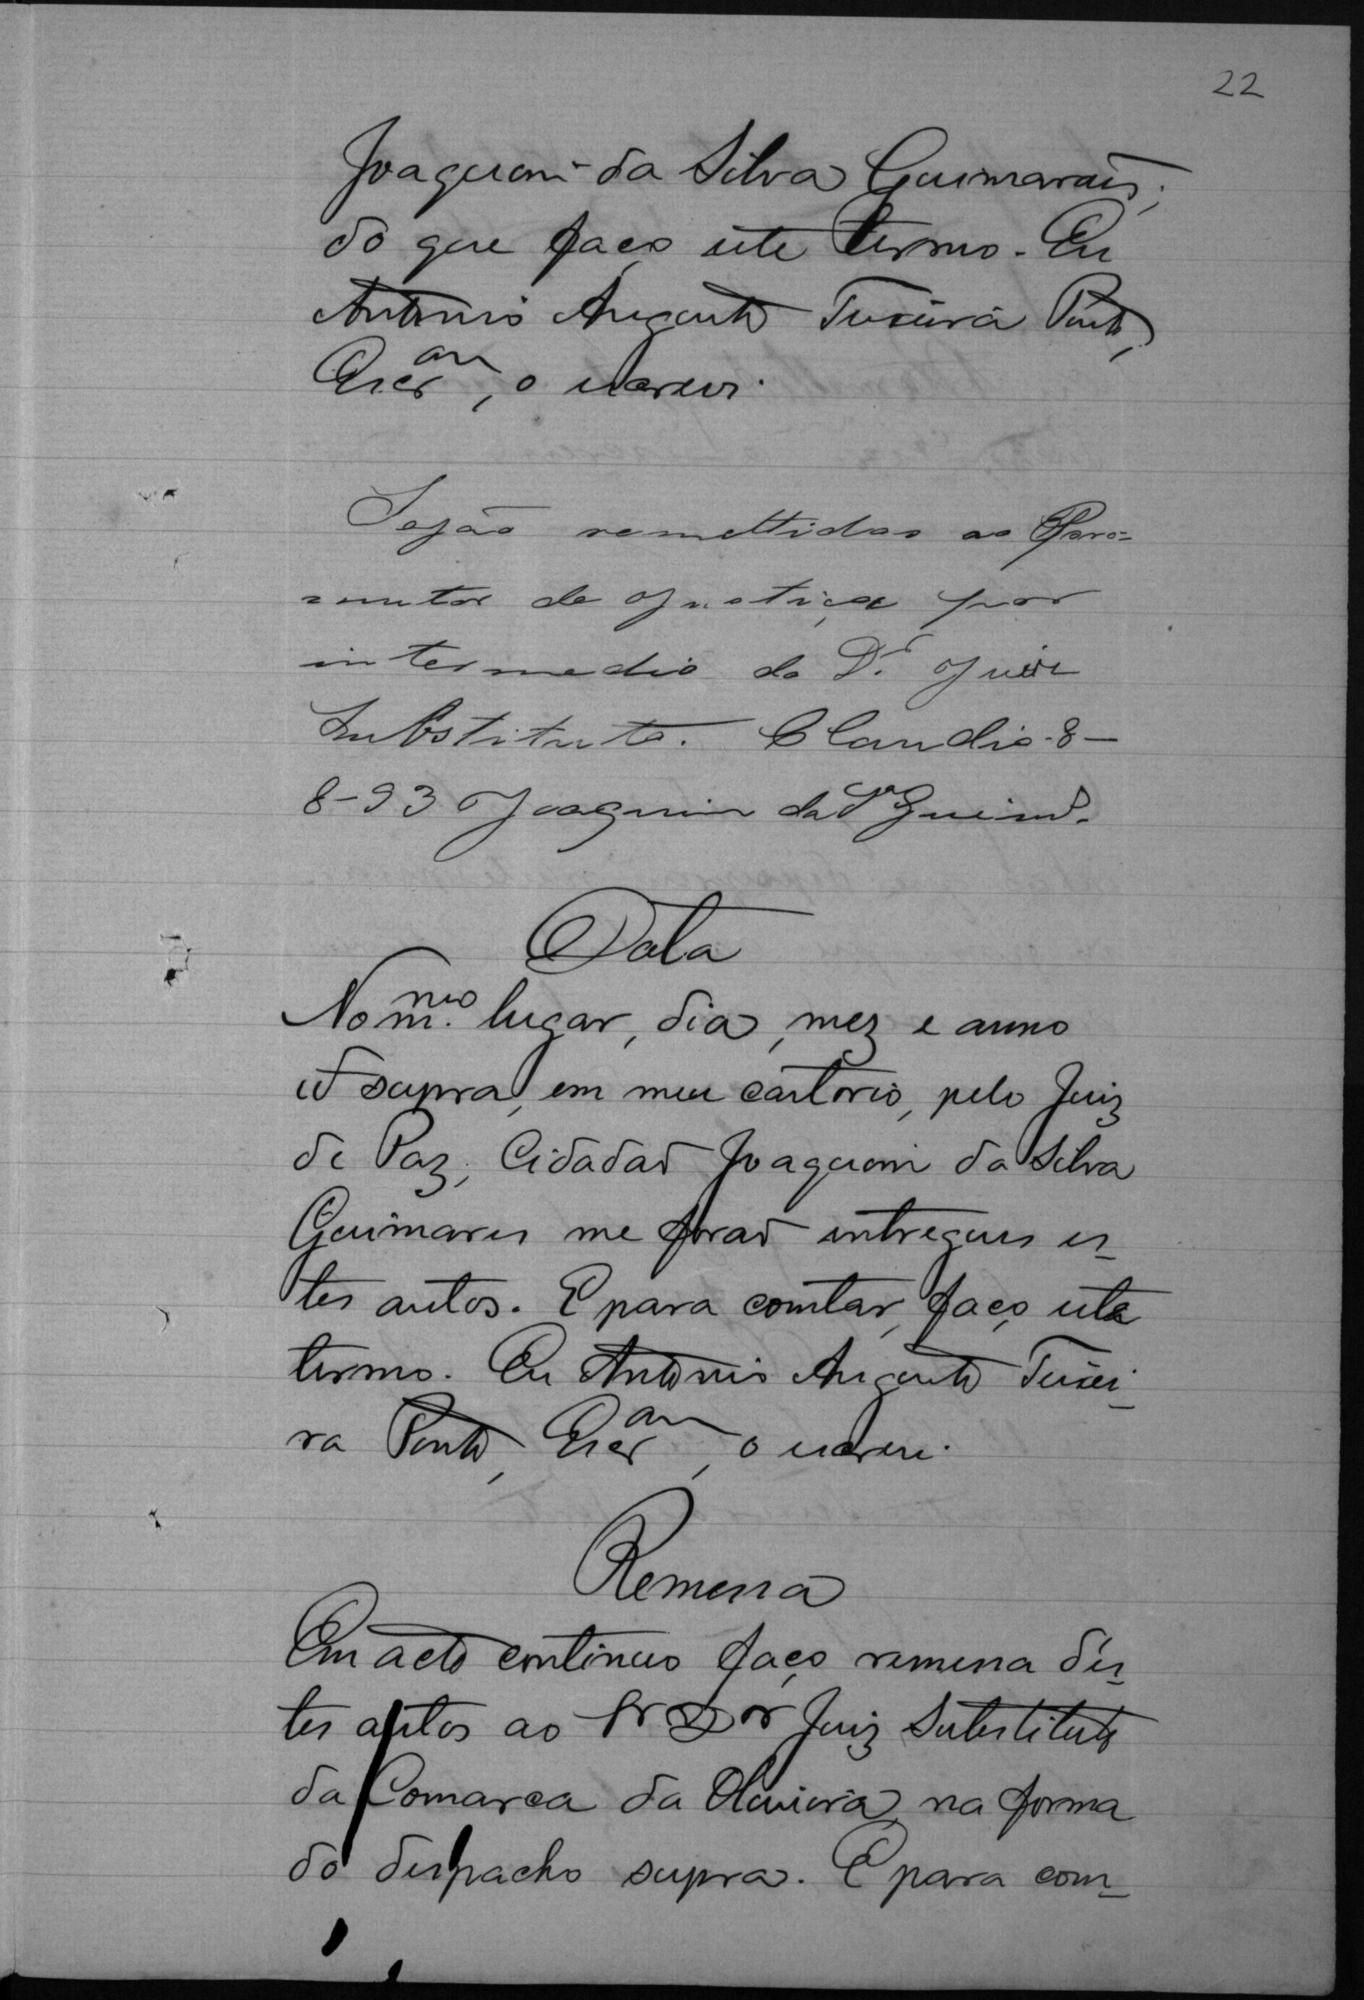 22
Joaquim da Silva Guimarães,
do que faço este termo. Eu
Antonio Augusto Teixeira Pinto,
Escr am, o escrevi.
Sejão remettidos ao Pro=
motor de Justiça por
intermedio do Dr. Juiz
Substituto. Claudio-8-
8-93 Joaquim da Sa Guims.
Data
No mmo. lugar, dia, mez e anno
ut supra, em meu cartorio, pelo Juiz
de Paz, Cidadão Joaquim da Silva
Guimares me forão entregues es-
tes autos. E para constar, faço este
termo. Eu Antonio Augusto Teixei-
ra Pinto, Escr am, o escrevi.
Remessa
Em acto continuo faço remessa des-
tes autos ao Sr Dor Juiz Substituto
da Comarca da Oliveira, na forma
do despacho supra. E para cons-